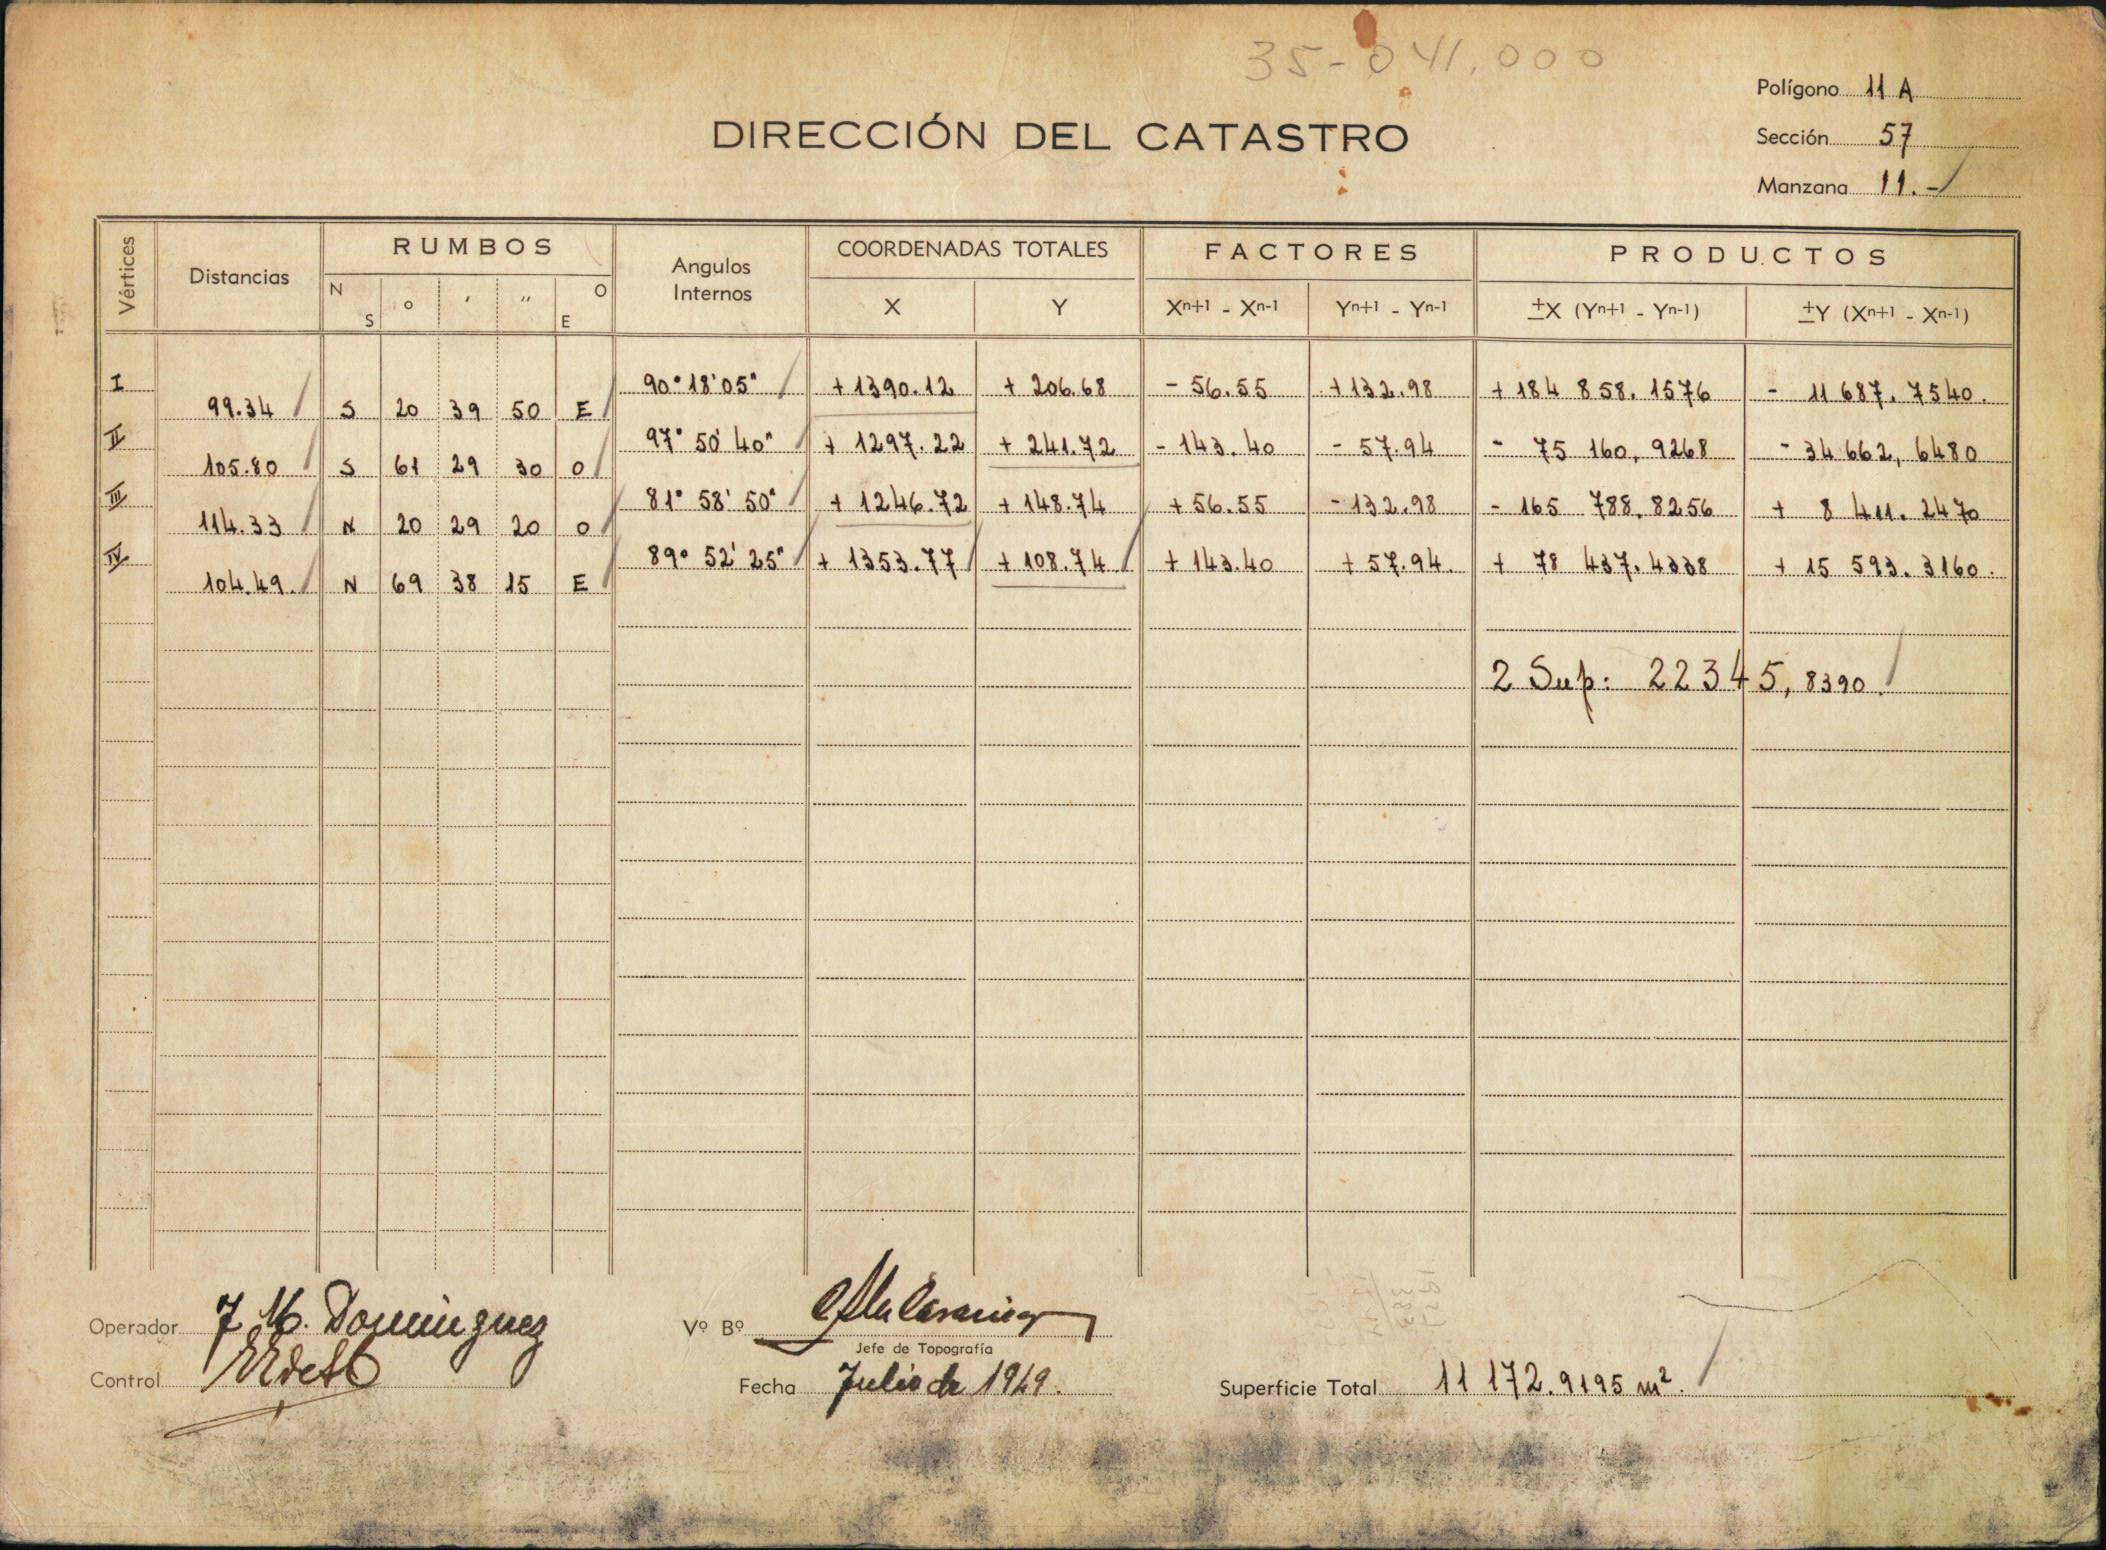 35-041.000
Polígono 11 A
DIRECCIÓN DEL CATASTRO
Sección 57
Manzana 11.-
Vértices Distancias RUMBOS Angulos Internos COORDENADAS TOTALES FACTORES PRODUCTOS
N S ° ′ ″ O E X Y Xn+1 - Xn-1 Yn+1 - Yn-1 ±X (Yn+1 - Yn-1) ±Y (Xn+1 - Xn-1)
I 90°18'05" + 1390.12 + 206.68 - 56.55 +132.98 +184 858.1576 - 11 687.7540.
99.34 S 20 39 50 E
II 97° 50' 40" + 1297.22 + 241.72 - 143.40 - 57.94 - 75 160,9268 - 34 662,6480
105.80 S 61 29 30 O
III 81° 58' 50" + 1246.72 + 148.74 + 56.55 - 132.98 - 165 788.8256 + 8 411.2470
114.33 N 20 29 20 O
IV 89° 52' 25" + 1353.77 + 108.74 + 143.40 + 57.94. + 78 437.4338 + 15 593.3160.
104.49. N 69 38 15 E
2 Sup: 22345,8390.
Operador J M. Dominguez
Vº Bº
Jefe de Topografía
Control
Fecha Julio de 1949.
Superficie Total 11 172.9195 m².